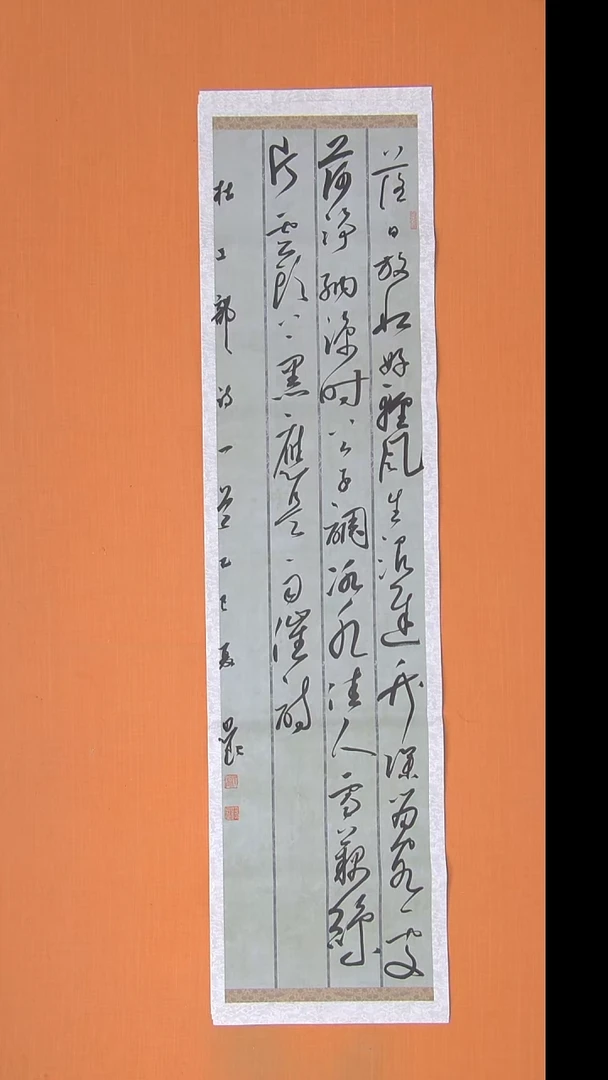 落日放船好輕風生浪遲竹深留客處
荷淨納涼時公子調冰水佳人雪藕絲
片雲頭上黑應是雨催詩
杜工部詩一首乙巳夏